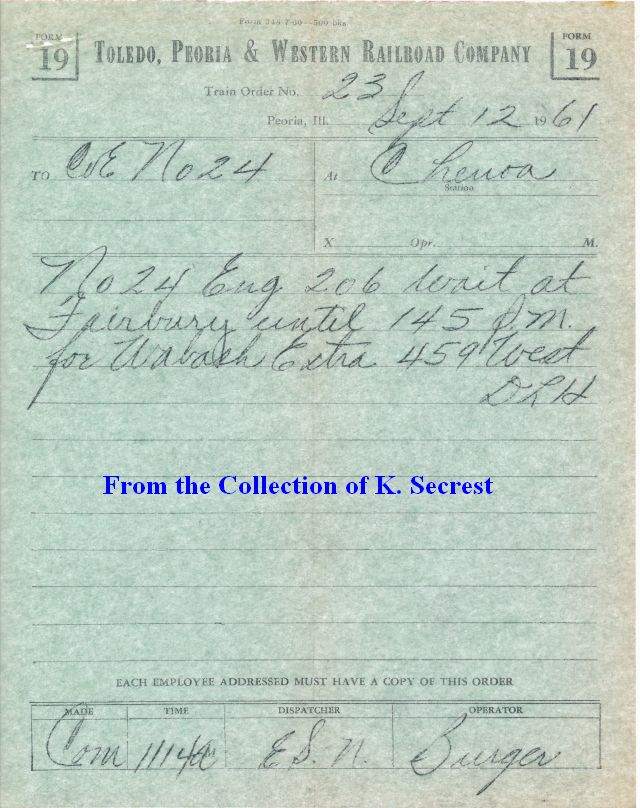 Form 248 7-60—500 bks
FORM 19 TOLEDO, PEORIA & WESTERN RAILROAD COMPANY FORM 19
Train Order No. 23
Peoria, Ill. Sept 12 1961
TO C&E No 24 At Chenoa
Station
X Opr. M.
No 24 Eng 206 wait at
Fairbury until 145 P.M.
for Wabash Extra 459 West
DLH
From the Collection of K. Secrest
EACH EMPLOYEE ADDRESSED MUST HAVE A COPY OF THIS ORDER
MADE TIME DISPATCHER OPERATOR
Com 1114 E.S.N. Burger